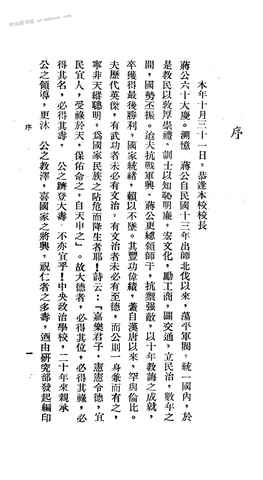 序
本年十月三十一日，恭逢本校校長
蔣公六十大慶。溯憶　蔣公自民國十三年出師北伐以來，蕩平軍閥，統一國內，於
是教民以敦厚崇禮，訓士以知恥明廉，宏文化，勵工商，闢交通，立民治，數年之
間，國勢丕振。迨夫抗戰軍興，蔣公更總領師干，抗禦強敵，以十年教誨之成就，
卒獲得最後勝利，國家統緒，賴以不墜。其豐功偉績，蓋自漢唐以來，罕與倫比。
夫歷代英傑，有武功者未必有文治。有文治者未必有至德，而公則一身兼而有之，
寧非天縱聰明，爲國家民族之阽危而降生者耶！詩云：「嘉樂君子，憲憲令德，宜
民宜人，受祿於天，保佑命之，自天申之」。故大德者，必得其位，必得其祿，必
得其名，必得其壽，　公之躋登大壽，不亦宜乎！中央政治學校，二十年來親承
公之領導，更沐　公之教澤，喜國家之將興，祝仁者之多壽，迺由研究部發起編印
序
一